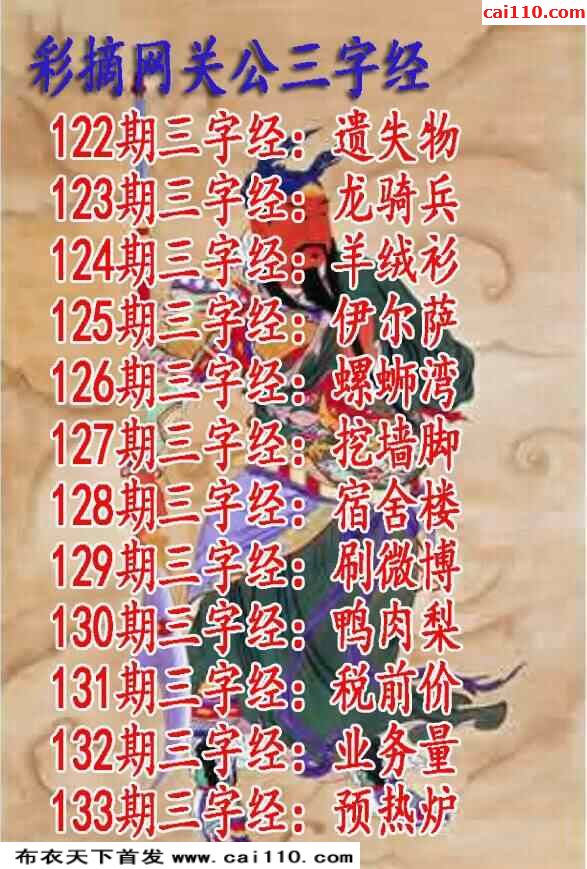 cai110.com
彩摘网关公三字经
122期三字经：遗失物
123期三字经：龙骑兵
124期三字经：羊绒衫
125期三字经：伊尔萨
126期三字经：螺蛳湾
127期三字经：挖墙脚
128期三字经：宿舍楼
129期三字经：刷微博
130期三字经：鸭肉梨
131期三字经：税前价
132期三字经：业务量
133期三字经：预热炉
布衣天下首发 www.cai110.com